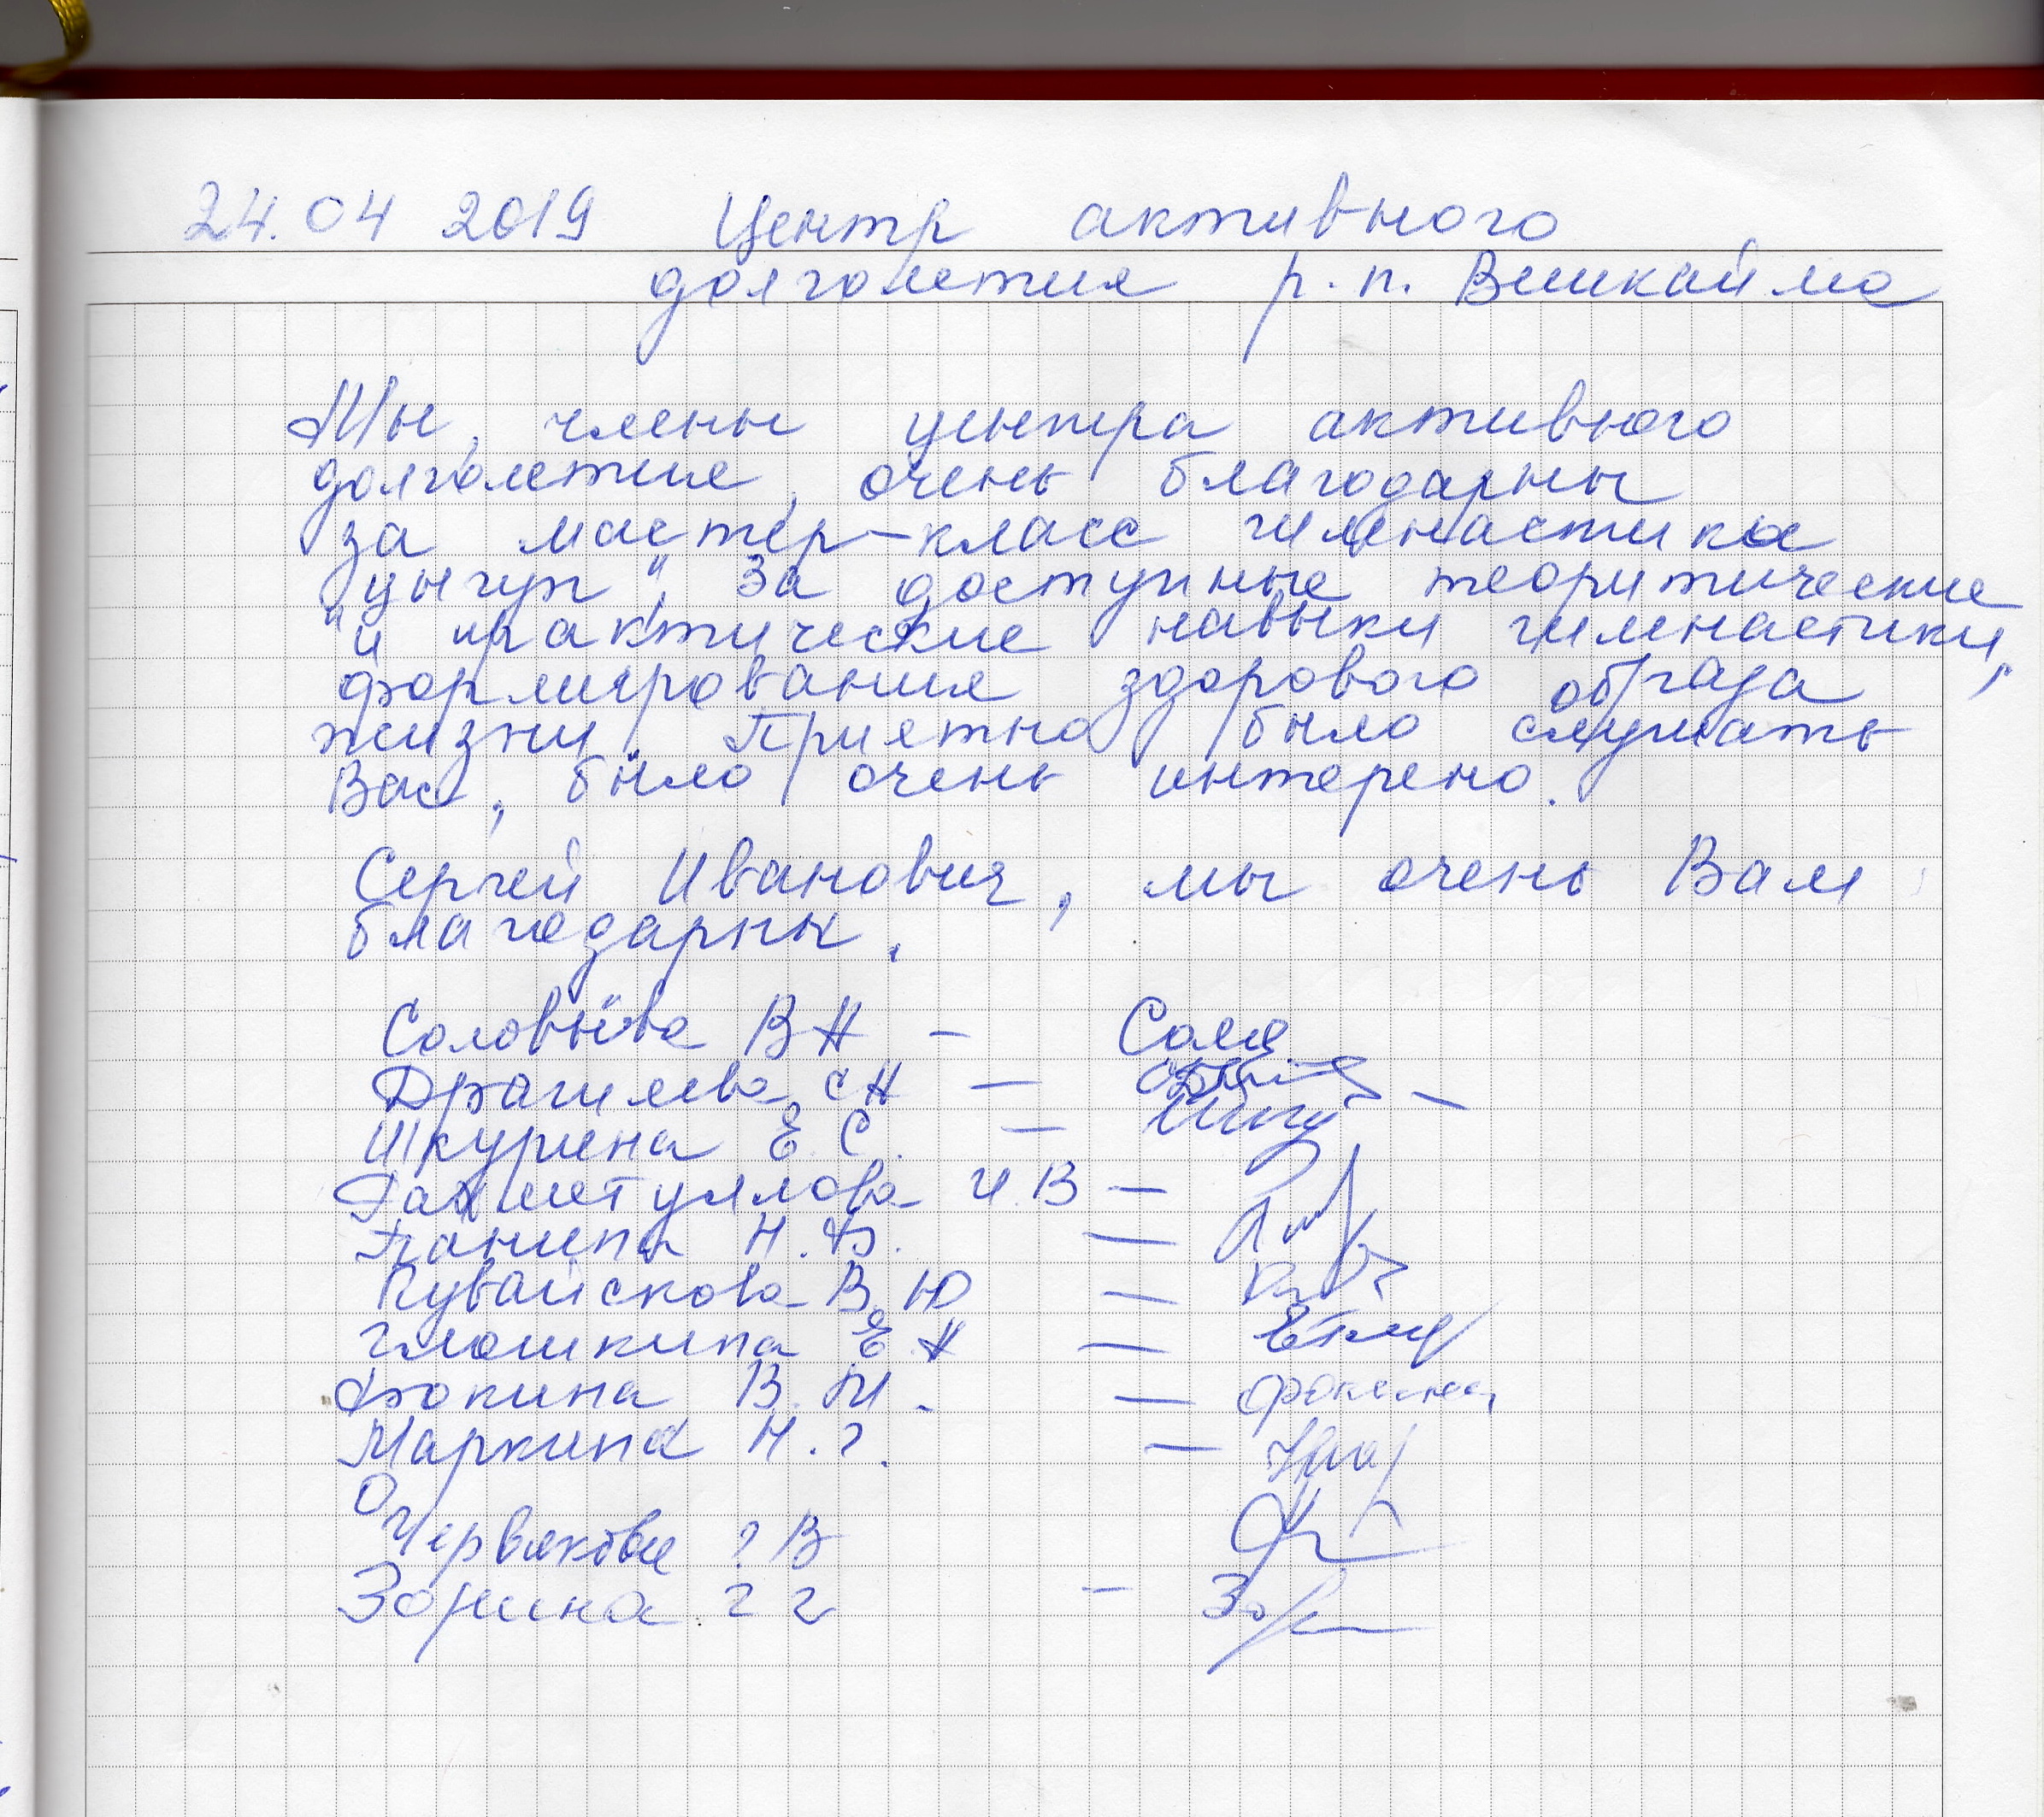 24.04 2019 Центр активного
долголетия р.п. Вешкайма
Мы, члены центра активного
долголетие, очень благодарны
за мастер-класс гимнастика
"цыгун", За доступные теоритические
и практические навыки гимнастики,
формирования здорового образа
жизни. Приятно было слушать
Вас, было очень интерено.
Сергей Иванович, мы очень Вам
благодарны.
Соловьёва В Н – Соло
Драгилева С Н –
Шкурина Е.С. –
Рахметуллова И.В –
Панина Н.В. –
Кувайскова В.Ю –
Глюшкина Е Н –
Фокина В.М. – Фокина
Маркина Н.Г. –
Червякова Г В
Зорина Г Г – Зор